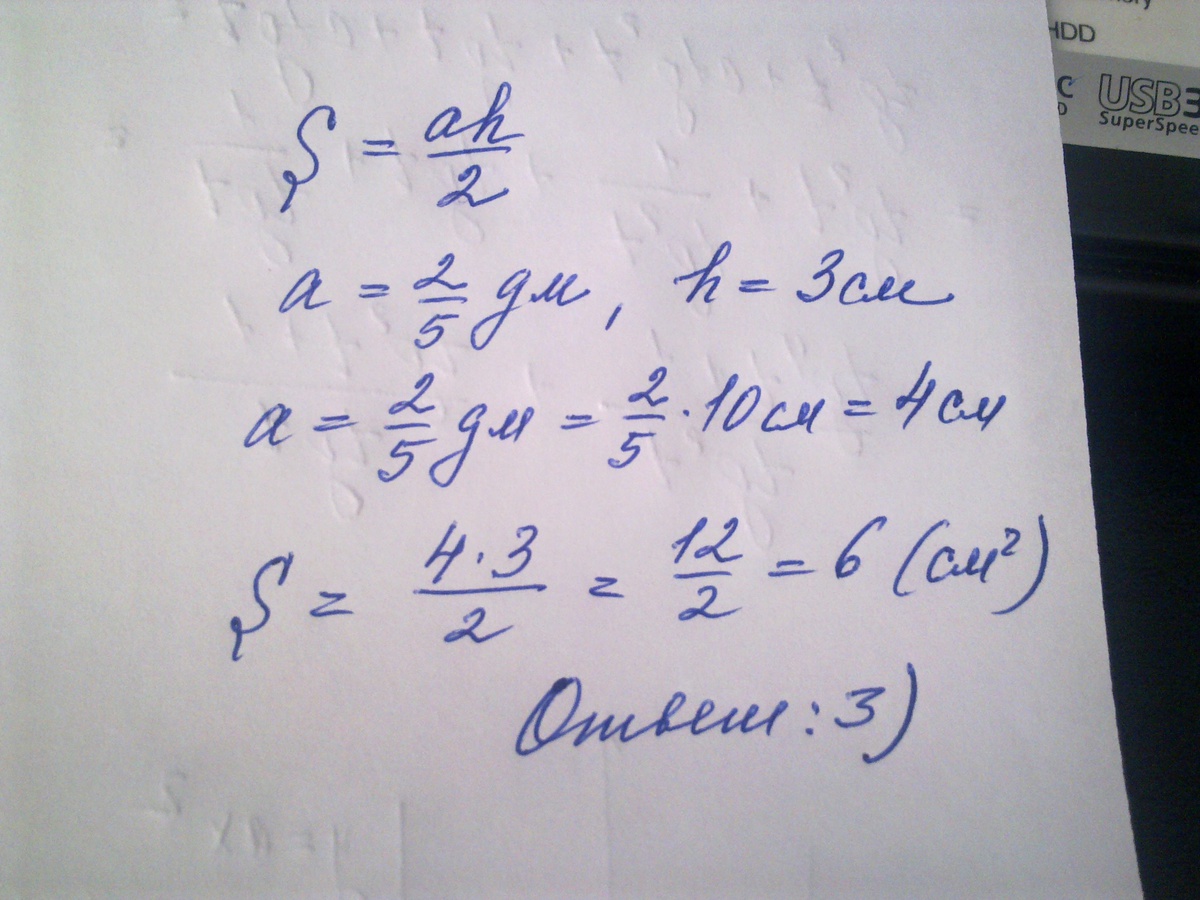 HDD
USB3
SuperSpee
S = ah/2
a = 2/5 дм, h = 3см
a = 2/5 дм = 2/5 · 10см = 4см
S = 4·3/2 = 12/2 = 6 (см²)
Ответ: 3)